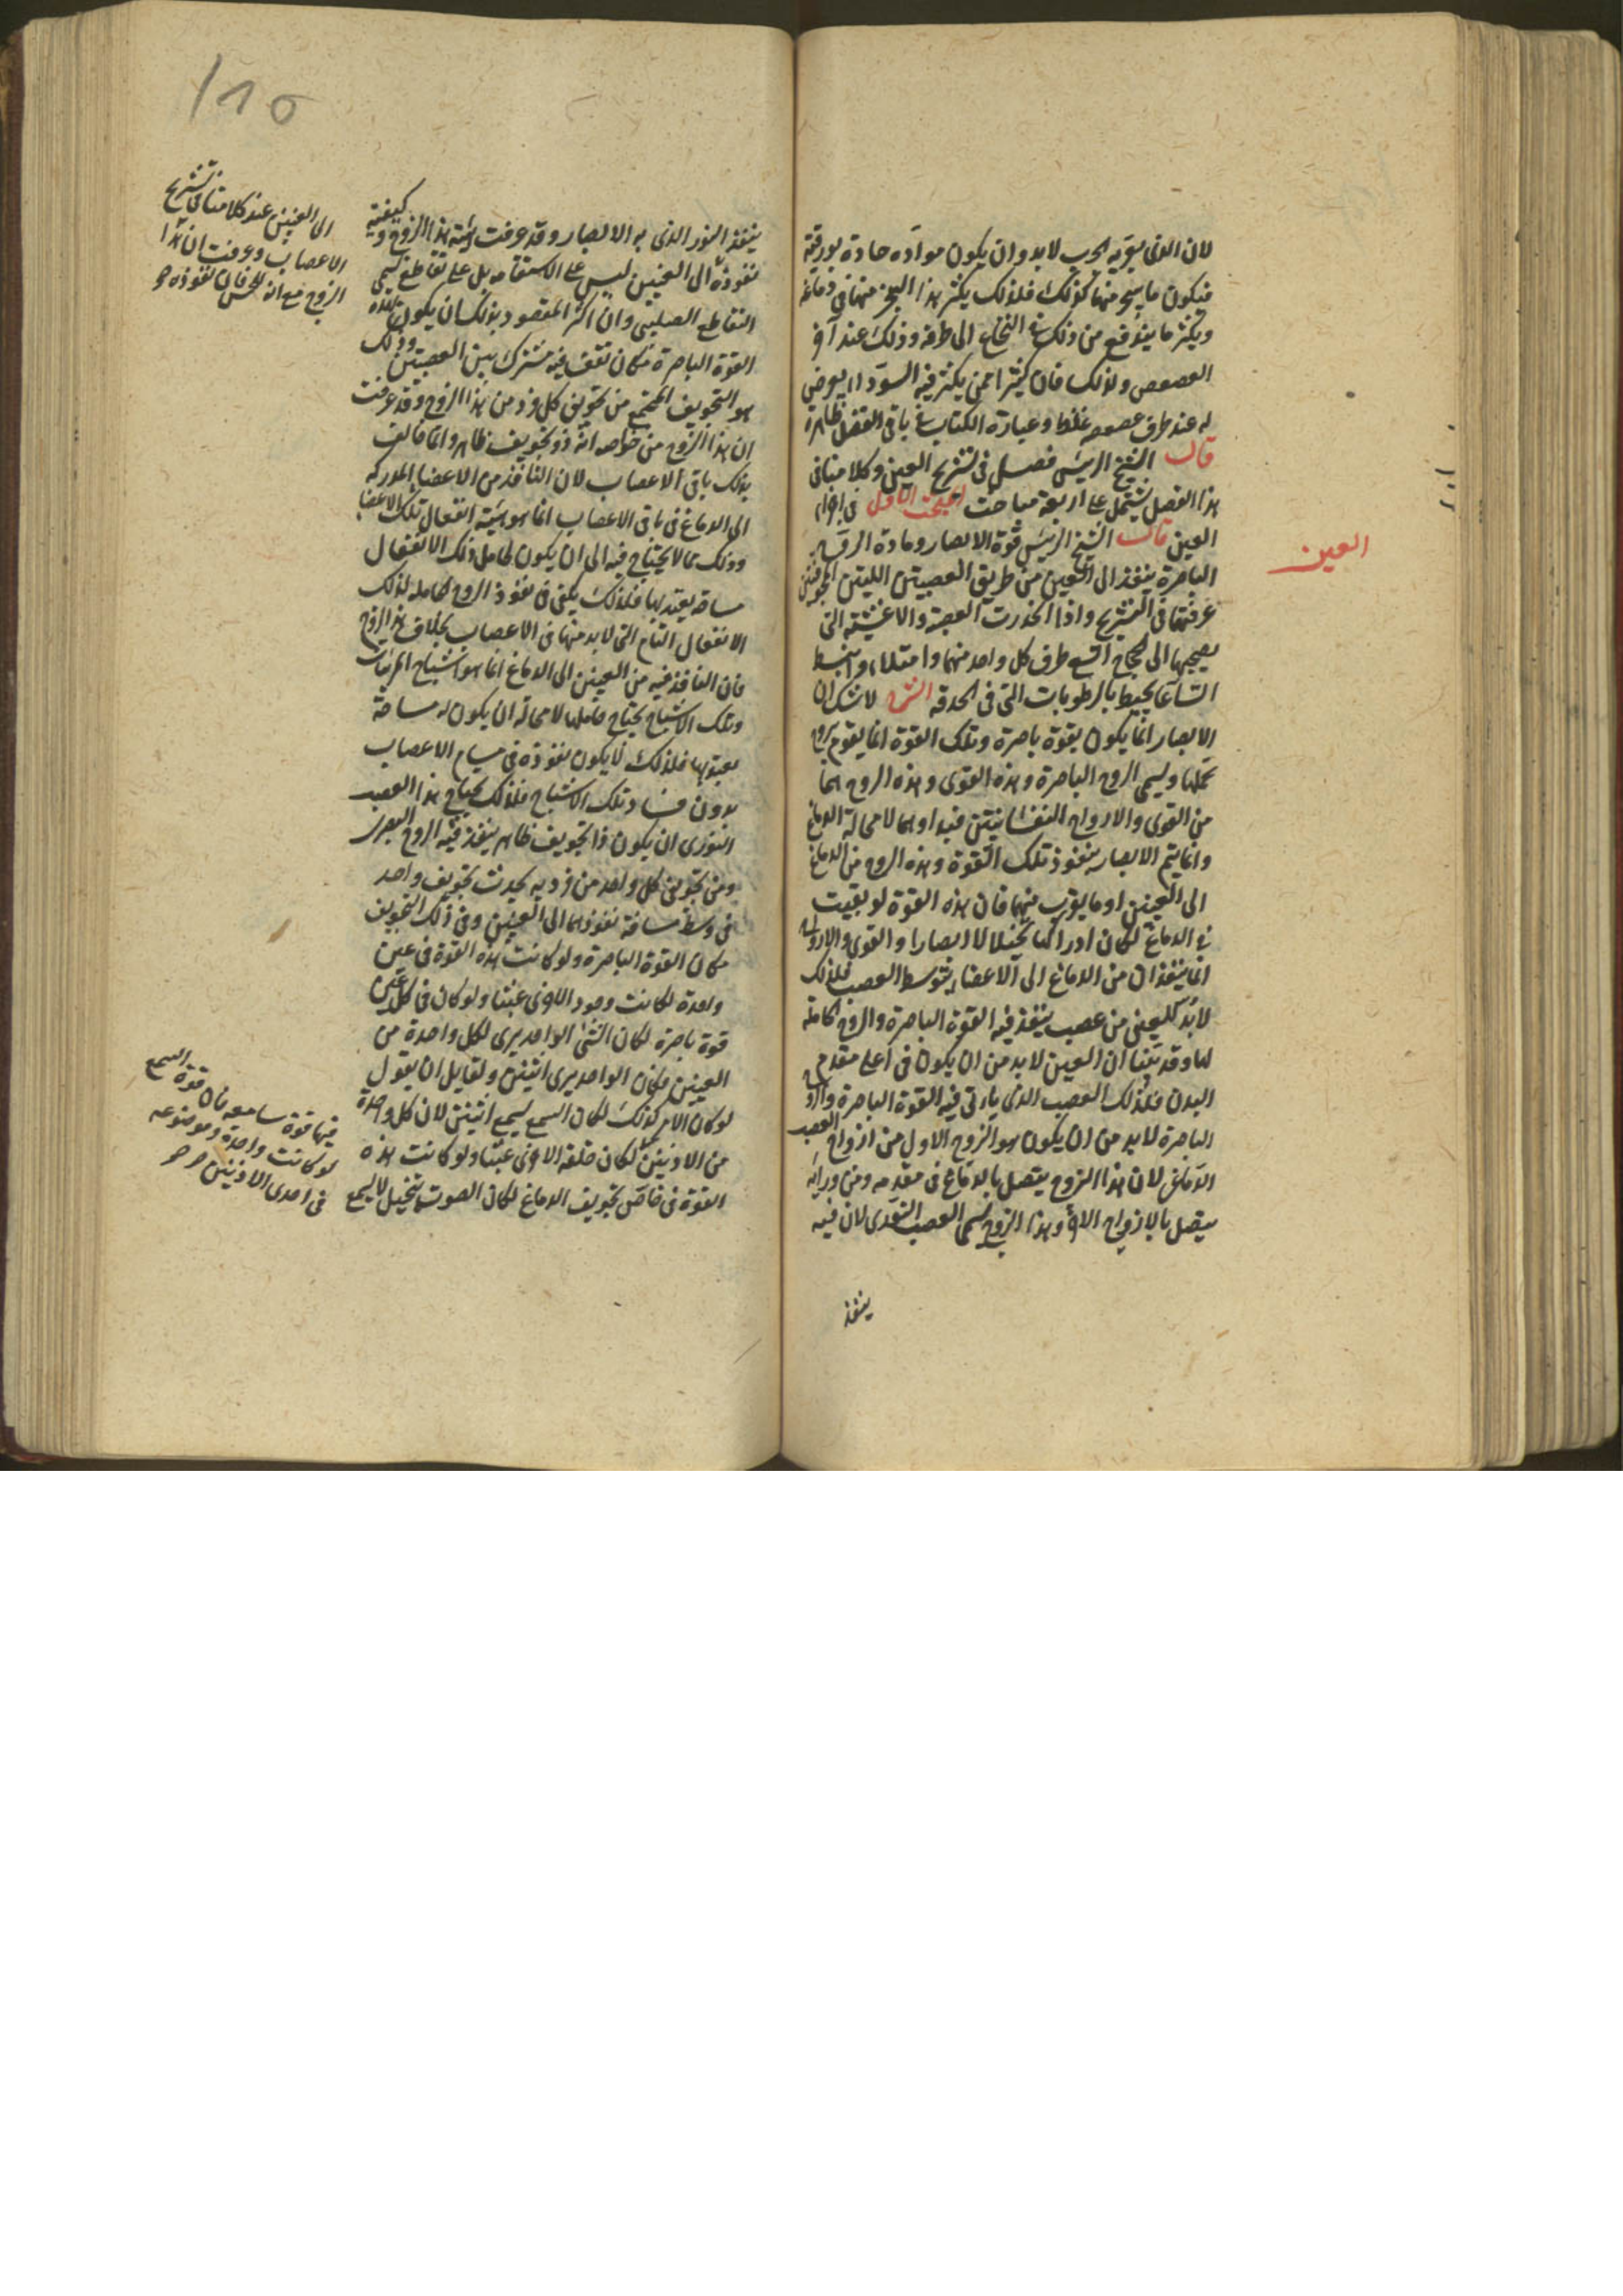 لان الذى يعتريه الجرب لابد وان يكون موادّه حادة بورقية
فيكون ما يتبخر منها كذلك فلذلك يكثر هذا البخر منها فى دماغه
ويكثر ما يندفع من ذلك فى النخاع الى طرفه وذلك عند آخر
العصعص ولذلك فان كثيرا ممن يكثر فيه السوداء يعرض
له عند طرف عصعصه غلظ وعبارة الكتاب فى باقى الفصل ظاهرة
قال الشيخ الرئيس فصل فى تشريح العين وكلامنا فى
هذا الفصل يشتمل على اربعة مباحث المبحث الاول فى اجزاء
العين قال الشيخ الرئيس قوة الابصار ومادة الروح
الباصرة ينفذ الى العين من طريق العصبتين اللتين المجوفتين
عرفتهما فى التشريح واذا انحدرت العصبة والاغشية التى
يصحبها الى الحجاج اتسع طرف كل واحد منهما وامتلاء وانبسط
اتساعا يحيط بالرطوبات التى فى الحدقة الشرح لا شك ان
الابصار انما يكون بقوة باصرة وتلك القوة انما يقوم بروح
تحملها ويسمى الروح الباصرة وهذه القوى وهذه الروح هما
من القوى والارواح النفسانيتين فمبداوهما لا محالة الدماغ
وانما يتم الابصار بنفوذ تلك القوة وهذه الروح من الدماغ
الى العينين او ما يقرب منهما فان هذه القوة لو بقيت
فى الدماغ لكان ادراكها تخيلا لا ابصارا والقوى والارواح
انما ينفذان من الدماغ الى الاعضاء بتوسط العصب فلذلك
لابد للعينين من عصب ينفذ فيه القوة الباصرة والروح الحاملة
لها وقد بينا ان العين لابد من ان يكون فى اعلى مقدم
البدن فلذلك العصب الذى ياتى فيه القوة الباصرة والروح
الباصرة لابد من ان يكون هو الزوج الاول من ازواج العصب
الدماغى لان هذا الزوج يتصل بالدماغ فى مقدمه ومن ورائه
يتصل بالازواج الاخر وهذا الزوج يسمى العصب النورى لان فيه
ينفذ
العين
ينفذ النور الذى به الابصار وقد عرفت هيئة هذا الزوج وكيفية
نفوذه الى العينين ليس على الاستقامة بل على تقاطع يسمى
التقاطع الصليبى وان اكثر المقصود بذلك ان يكون لهذه
القوة الباصرة مكان تقف فيه مشترك بين العصبتين وذلك
هو التجويف المجتمع من تجويف كل فرد من هذا الزوج وقد عرفت
ان هذا الزوج من خواصه انه ذو تجويف ظاهر وانما خالف
بذلك باقى الاعصاب لان النافذ من الاعضاء المدركة
الى الدماغ فى باقى الاعصاب انما هو هيئة انفعال تلك الاعضا
وذلك مما لا يحتاج فيه الى ان يكون لحامل ذلك الانفعال
مساحة يعتد بها فلذلك يكفى فى نفوذ الروح الحاملة لذلك
الانفعال المسام التى لابد منها فى الاعصاب بخلاف هذا الزوج
فان النافذ فيه من العينين الى الدماغ انما هو اشباح المرئيات
وتلك الاشباح يحتاج حاملها لا محالة ان يكون له مساحة
معتد بها فلذلك لا يكون نفوذه فى مسام الاعصاب
بدون فساد تلك الاشباح فلذلك يحتاج هذا العصب
النورى ان يكون ذا تجويف ظاهر ينفذ فيه الروح البصرى
ومن تجويف كل واحد من فرديه يحدث تجويف واحد
فى وسط مسافة نفوذهما الى العينين وفى ذلك التجويف
مكان القوة الباصرة ولو كانت هذه القوة فى عين
واحدة لكانت وجود الاخرى عبثا ولو كان فى كل عين
قوة باصرة لكان الشئ الواحد يرى لكل واحدة من
العينين فكان الواحد يرى اثنين ولقايل ان يقول
لو كان الامر كذلك لكان السمع يسمع اثنين لان كل واحدة
من الاذنين لكان خلقة الاخرى عبثا ولو كانت هذه
القوة فى خاص تجويف الدماغ لكان الصوت يتخيل لا يسمع
الى العينين عند كلامنا فى تشريح
الاعصاب وعرفت ان هذا
الزوج مع انه للحس فان نفوذه
فيها قوة سامعة فان قوة السمع
لو كانت واحدة وموضوعه
فى احدى الاذنين
115